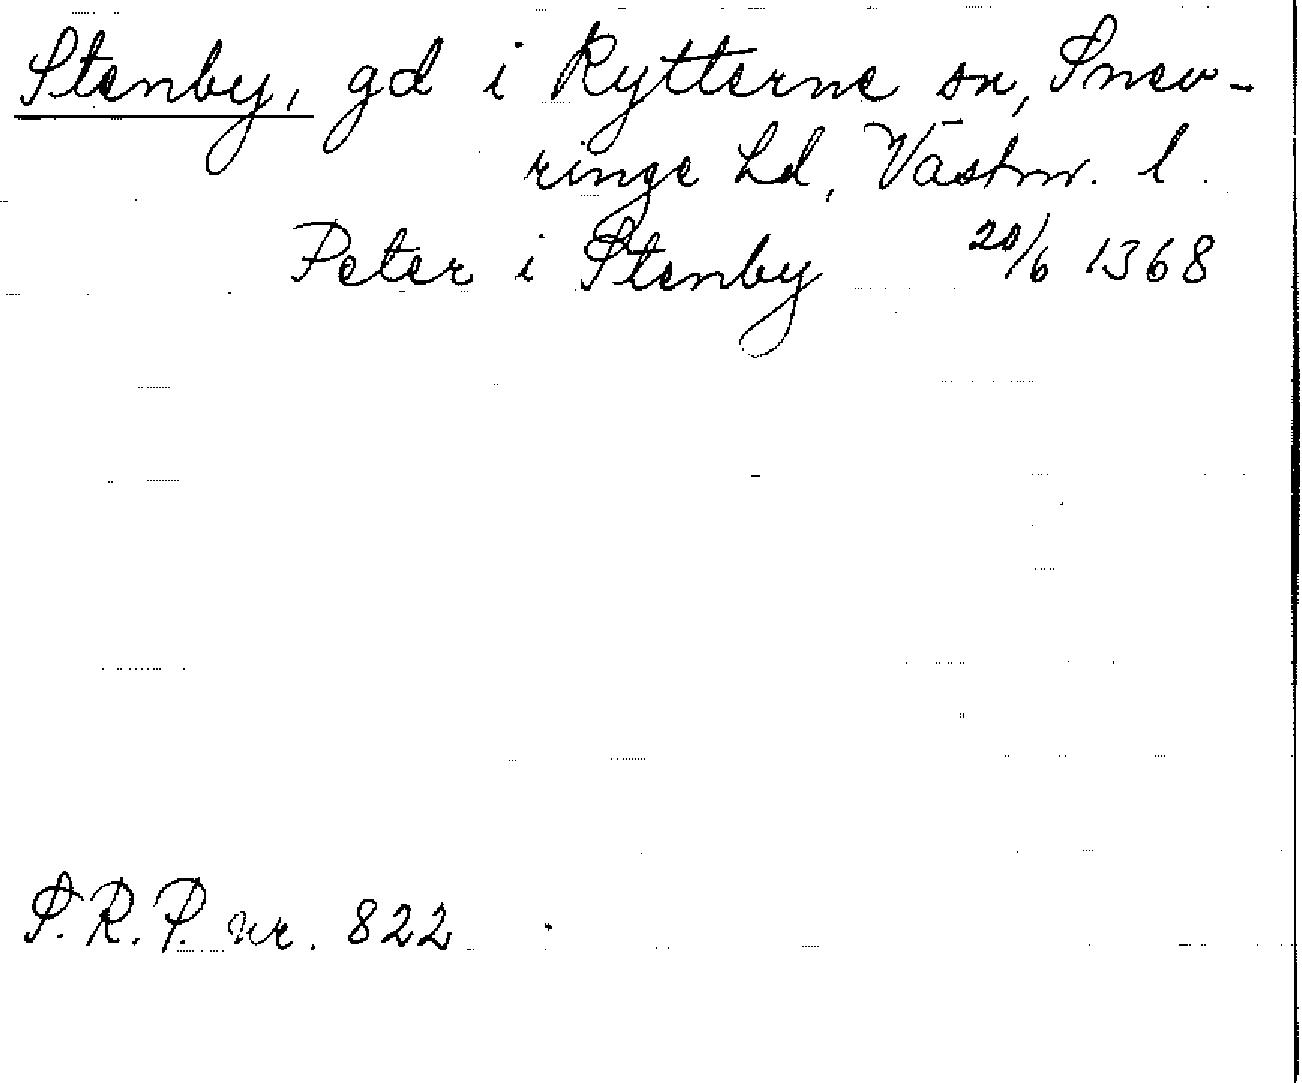 Stenby, gd i Rytterne sn, Snev-
ringe hd, Västm. l.
Peter i Stenby 20/6 1368
S.R.P. nr. 822